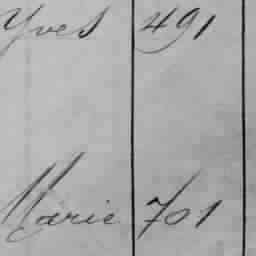 Yves 491
Marie 701